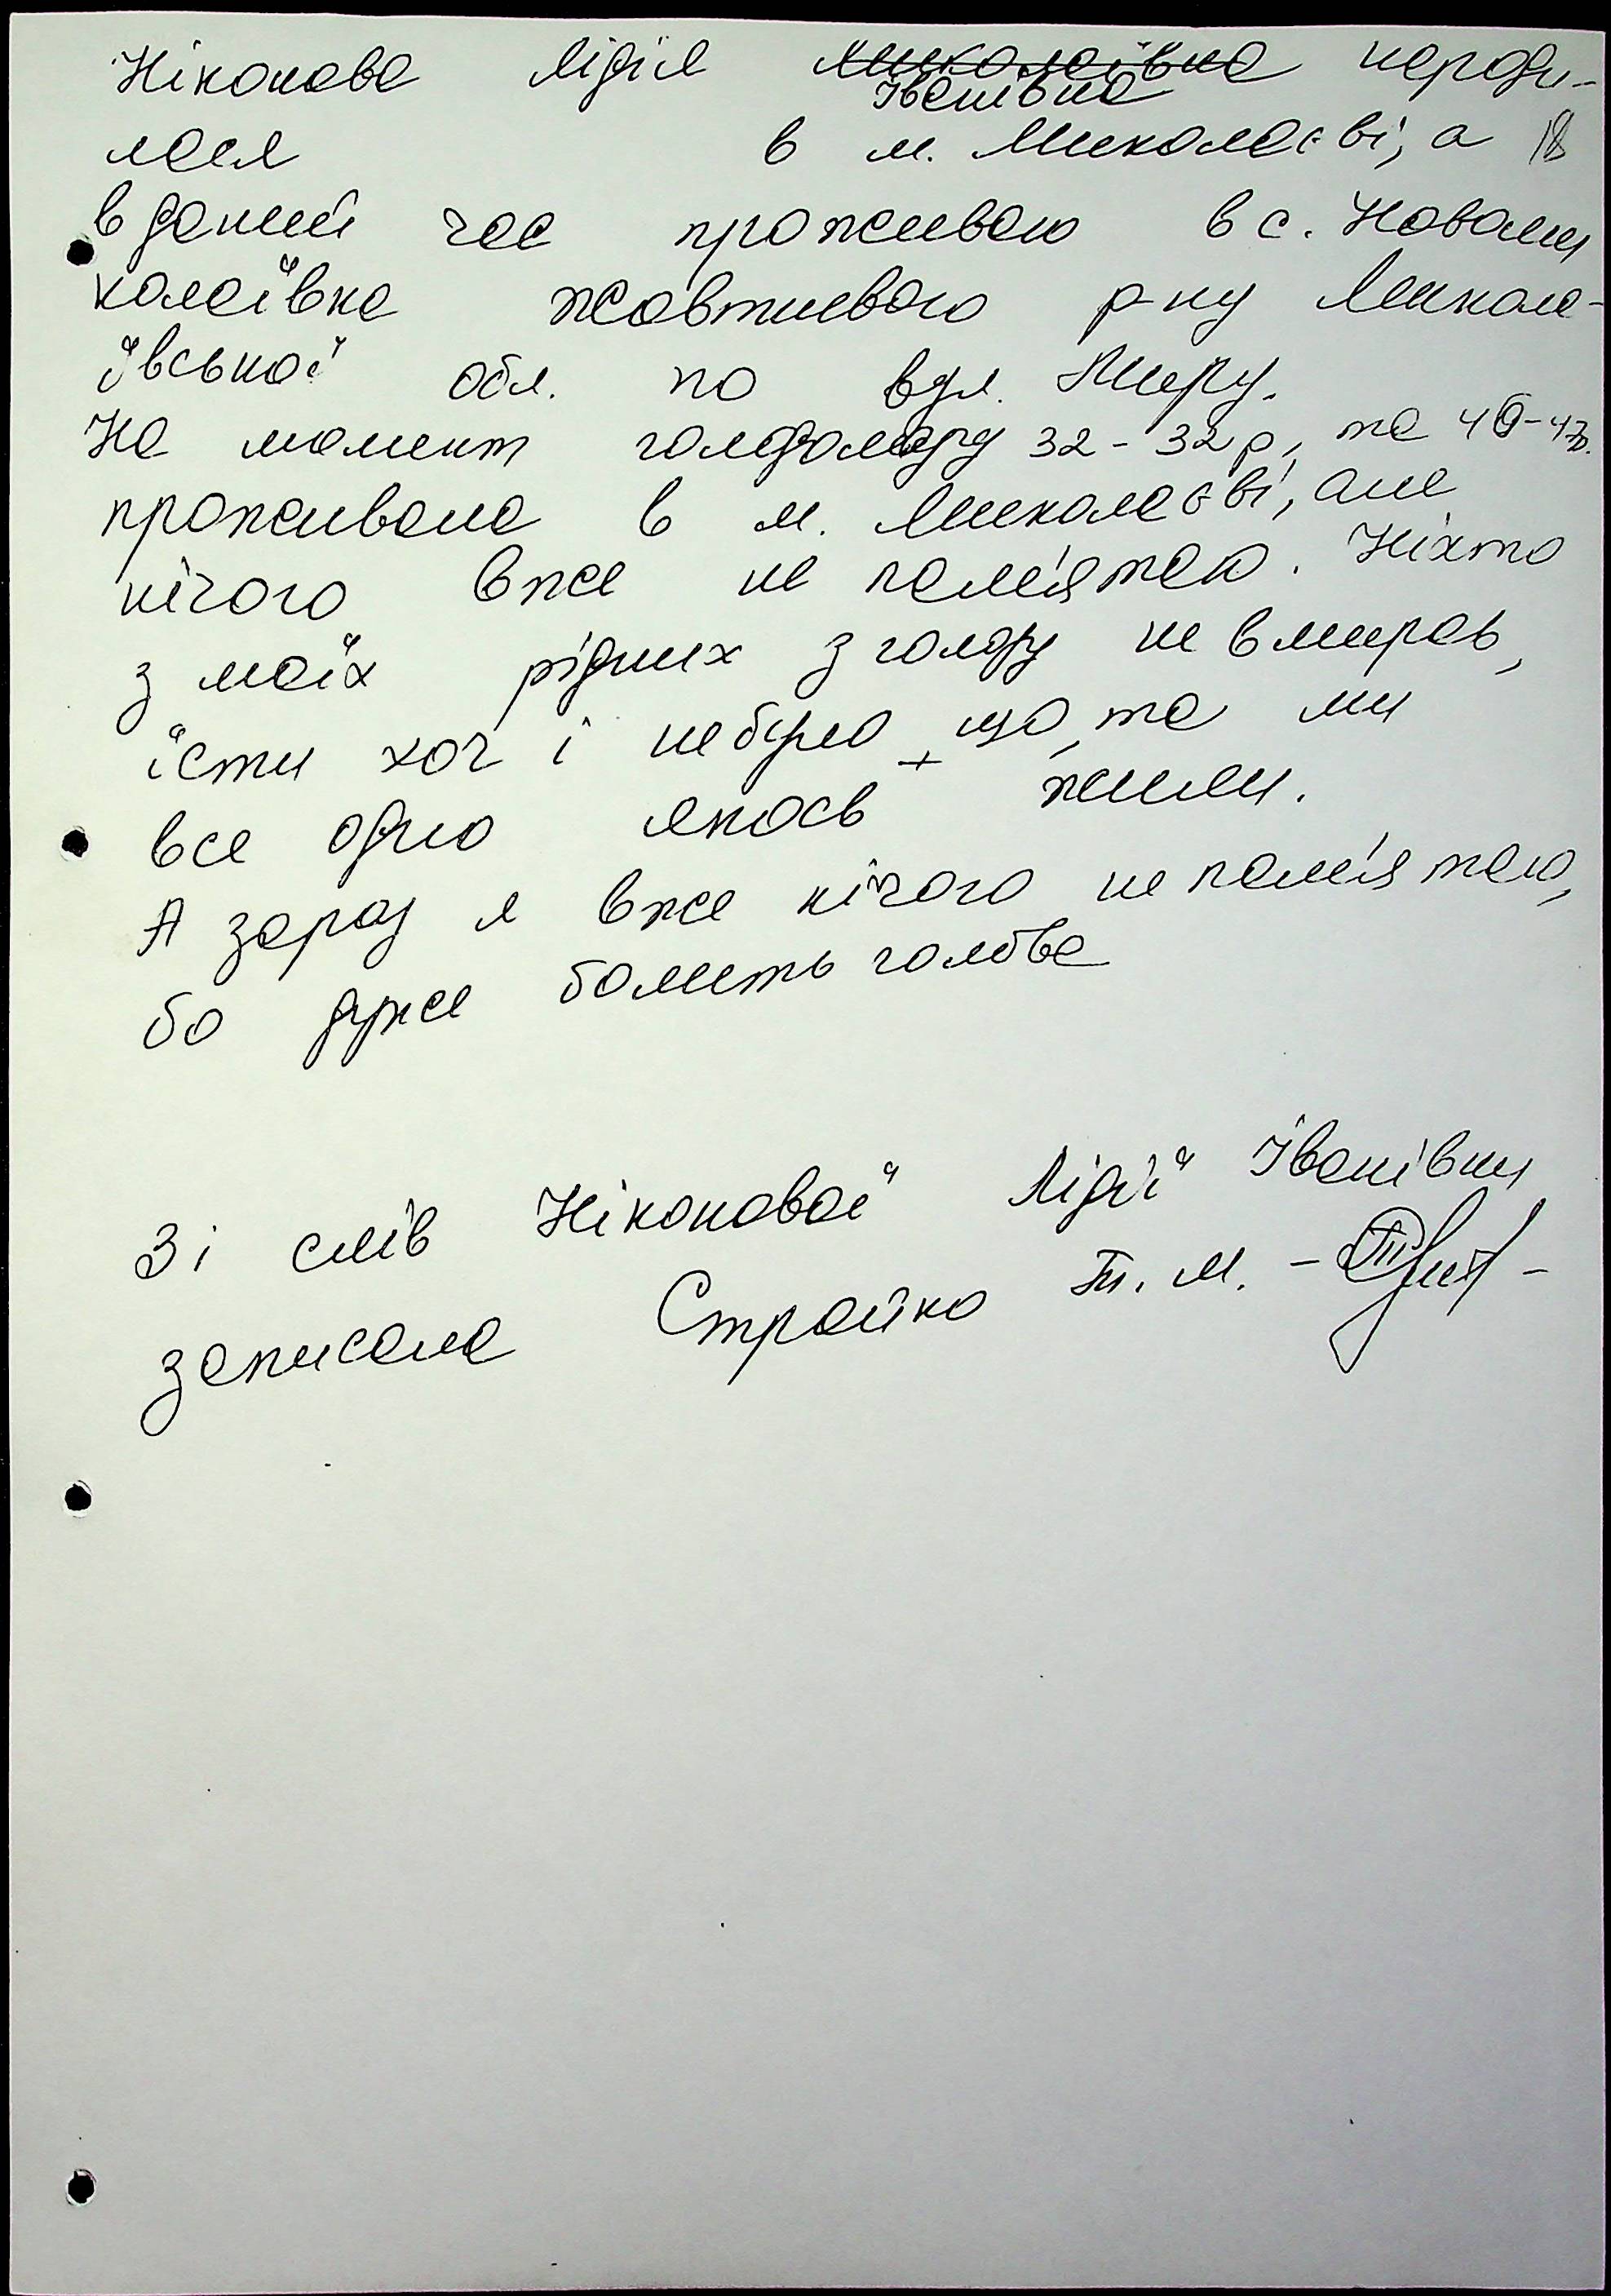 Ніконова Лідія Миколаївна народи-
Іванівна
лася в м. Миколаєві, а
в даний час проживаю в с. Новоми
колаївка Жовтневого р-ну Микола-
ївської обл. по вул. Миру.
На момент голодомору 32-32р, та 46-47р.
проживала в м. Миколаєві, але
нічого вже не пам'ятаю. Ніхто
з моїх рідних з голоду не вмирав,
їсти хоч і не було що, та ми
все одно якось жили.
А зараз я вже нічого не пам'ятаю,
бо дуже болить голова
Зі слів Ніконової Лідії Іванівни
записала Стройко Т. М. -